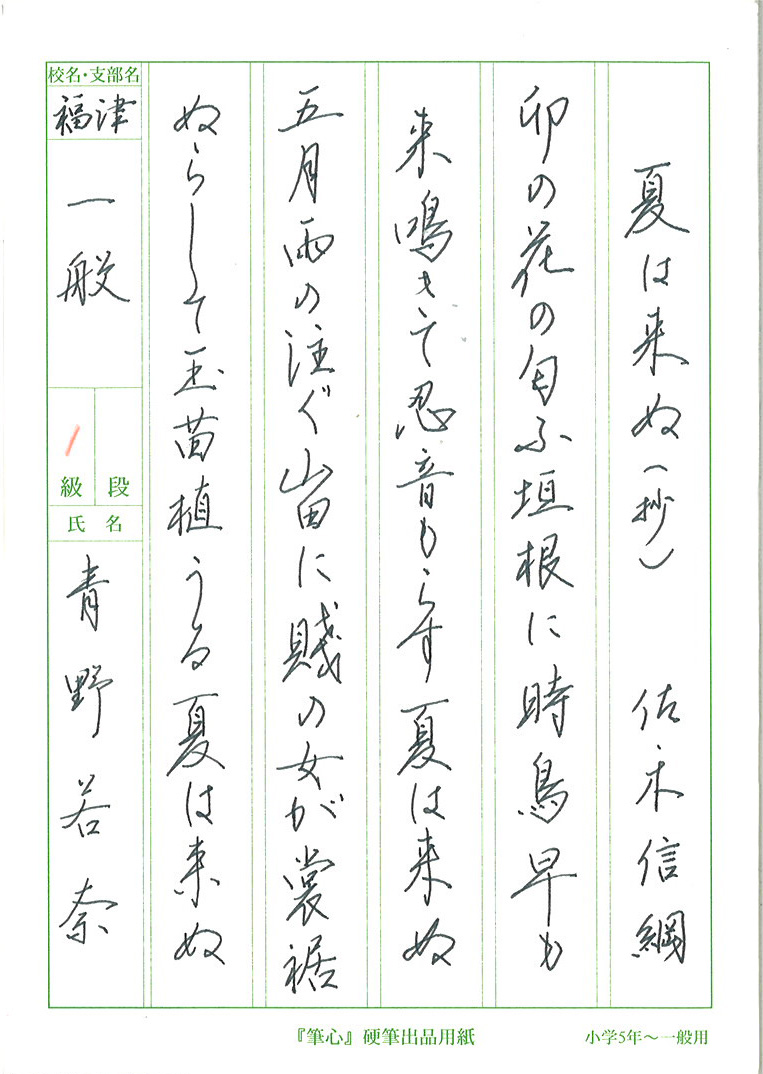 夏は来ぬ(抄) 佐々木信綱
卯の花の匂ふ垣根に時鳥早も
来鳴きて忍音もらす夏は来ぬ
五月雨の注ぐ山田に賤の女が裳裾
ぬらして玉苗植うる夏は来ぬ
校名・支部名
福津
一般
1
級 段
氏名
青野若奈
『筆心』硬筆出品用紙 小学5年〜一般用